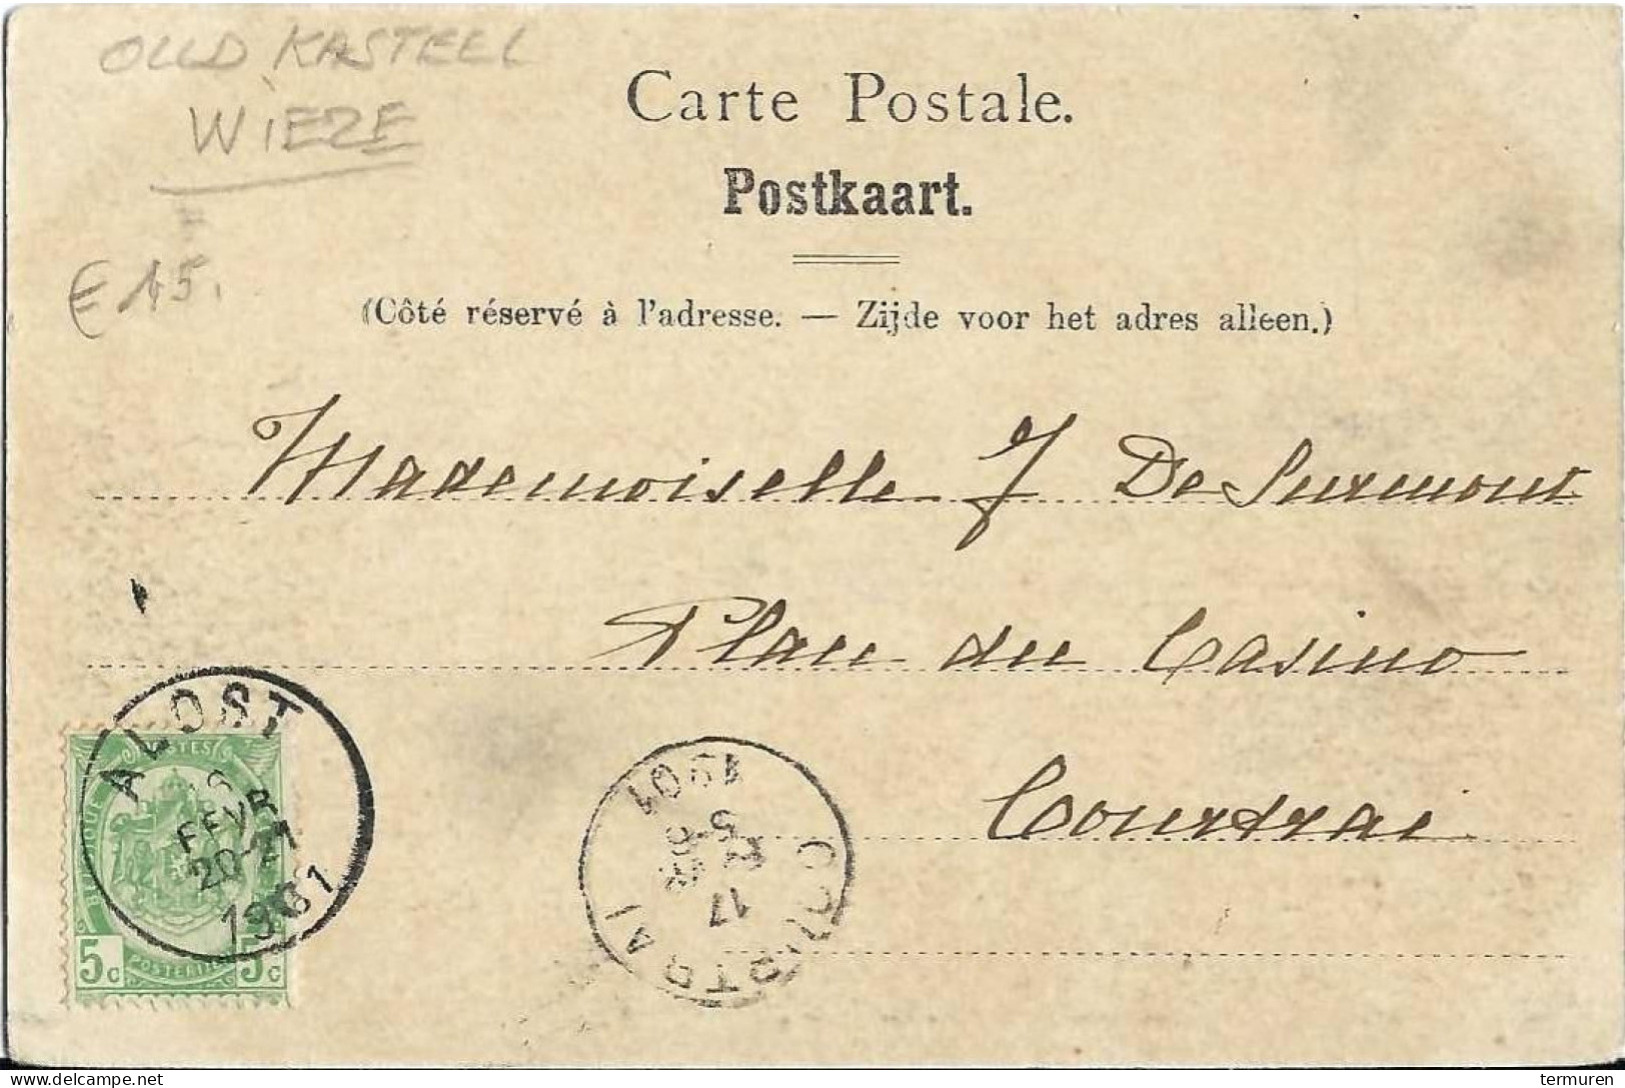 OUD KASTEEL
WIEZE
€ 15.
Carte Postale.
Postkaart.
(Côté réservé à l'adresse. — Zijde voor het adres alleen.)
Mademoiselle J De Surmont
Place du Casino
Courtrai
ALOST
16
FEVR
20-21
1901
POSTES
BELGIQUE
5c POSTERIJEN 5c
COURTRAI
17
1901
termuren
delcampe.net